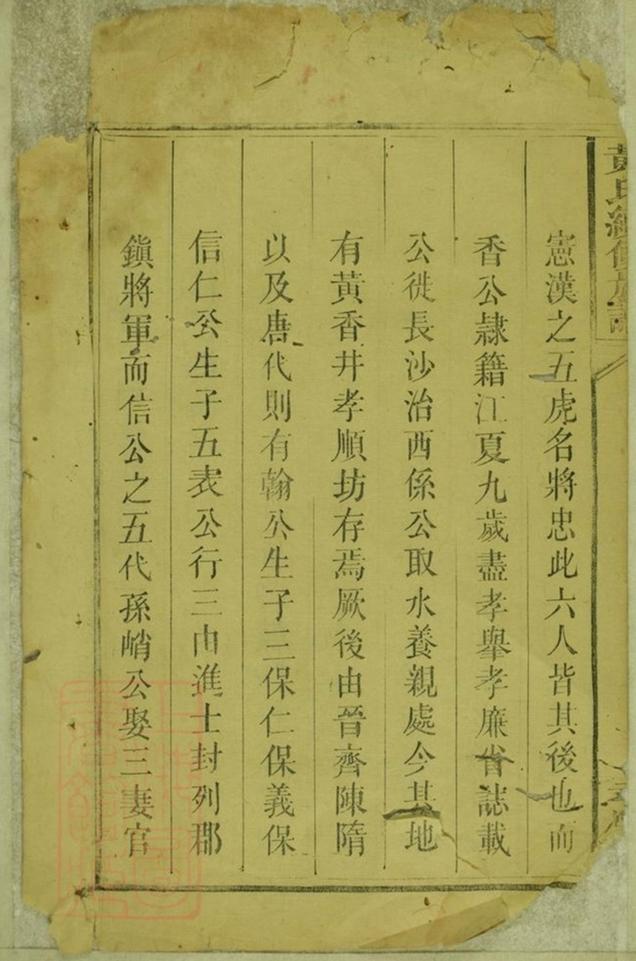 黃氏續修族譜
憲漢之五虎名將忠此六人皆其後也而
香公隷籍江夏九歲盡孝舉孝廉省誌載
公徙長沙治西係公取水養親處今其地
有黃香井孝順坊存焉厥後由晉齊陳隋
以及唐代則有翰公生子三保仁保義保
信仁公生子五表公行三由進士封列郡
鎭將軍而信公之五代孫峭公娶三妻官